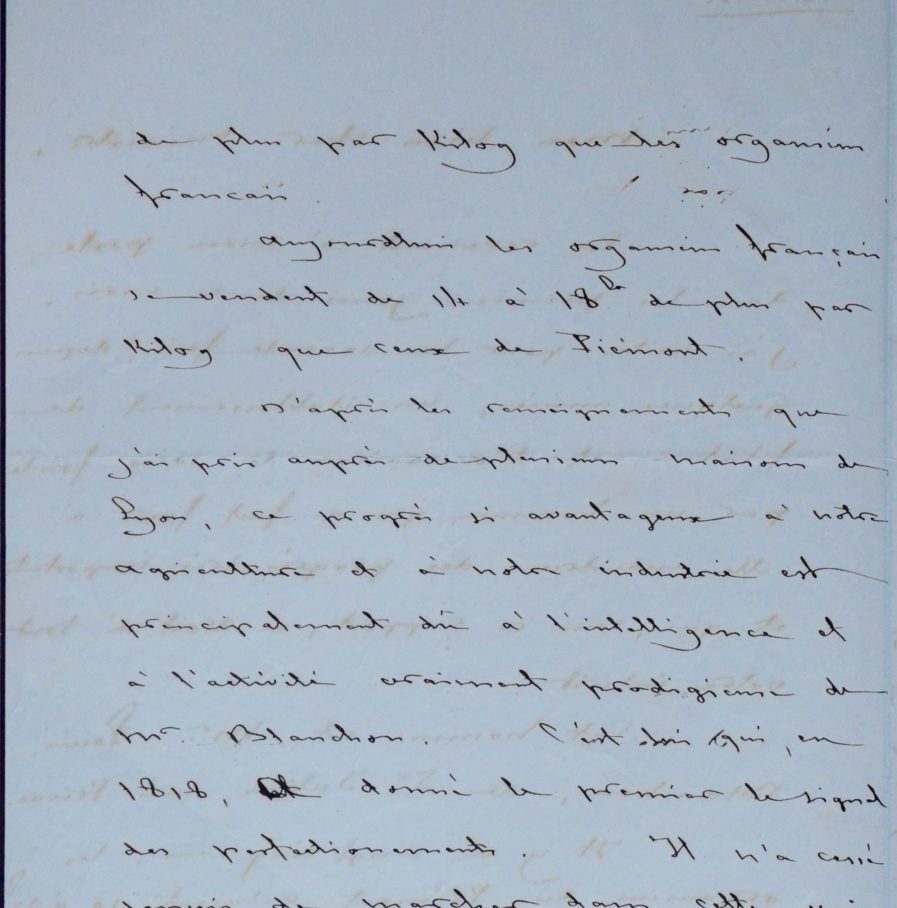 de plus par Kilog que les organsins
français.
Aujourdhui les organsins français
se vendent de 14 à 18 fr de plus par
Kilog que ceux de Piémont.
D'après les renseignements que
j'ai pris auprès de plusieurs maisons de
Lyon, ce progrès si avantageux à notre
agriculture et à notre industrie est
principalement dû à l'intelligence et
à l'activité vraiment prodigieuse de
Mr. Blanchon. C'est lui qui, en
1818, donné le premier le signal
des perfectionnements. Il n'a cessé
depuis de marcher dans cette